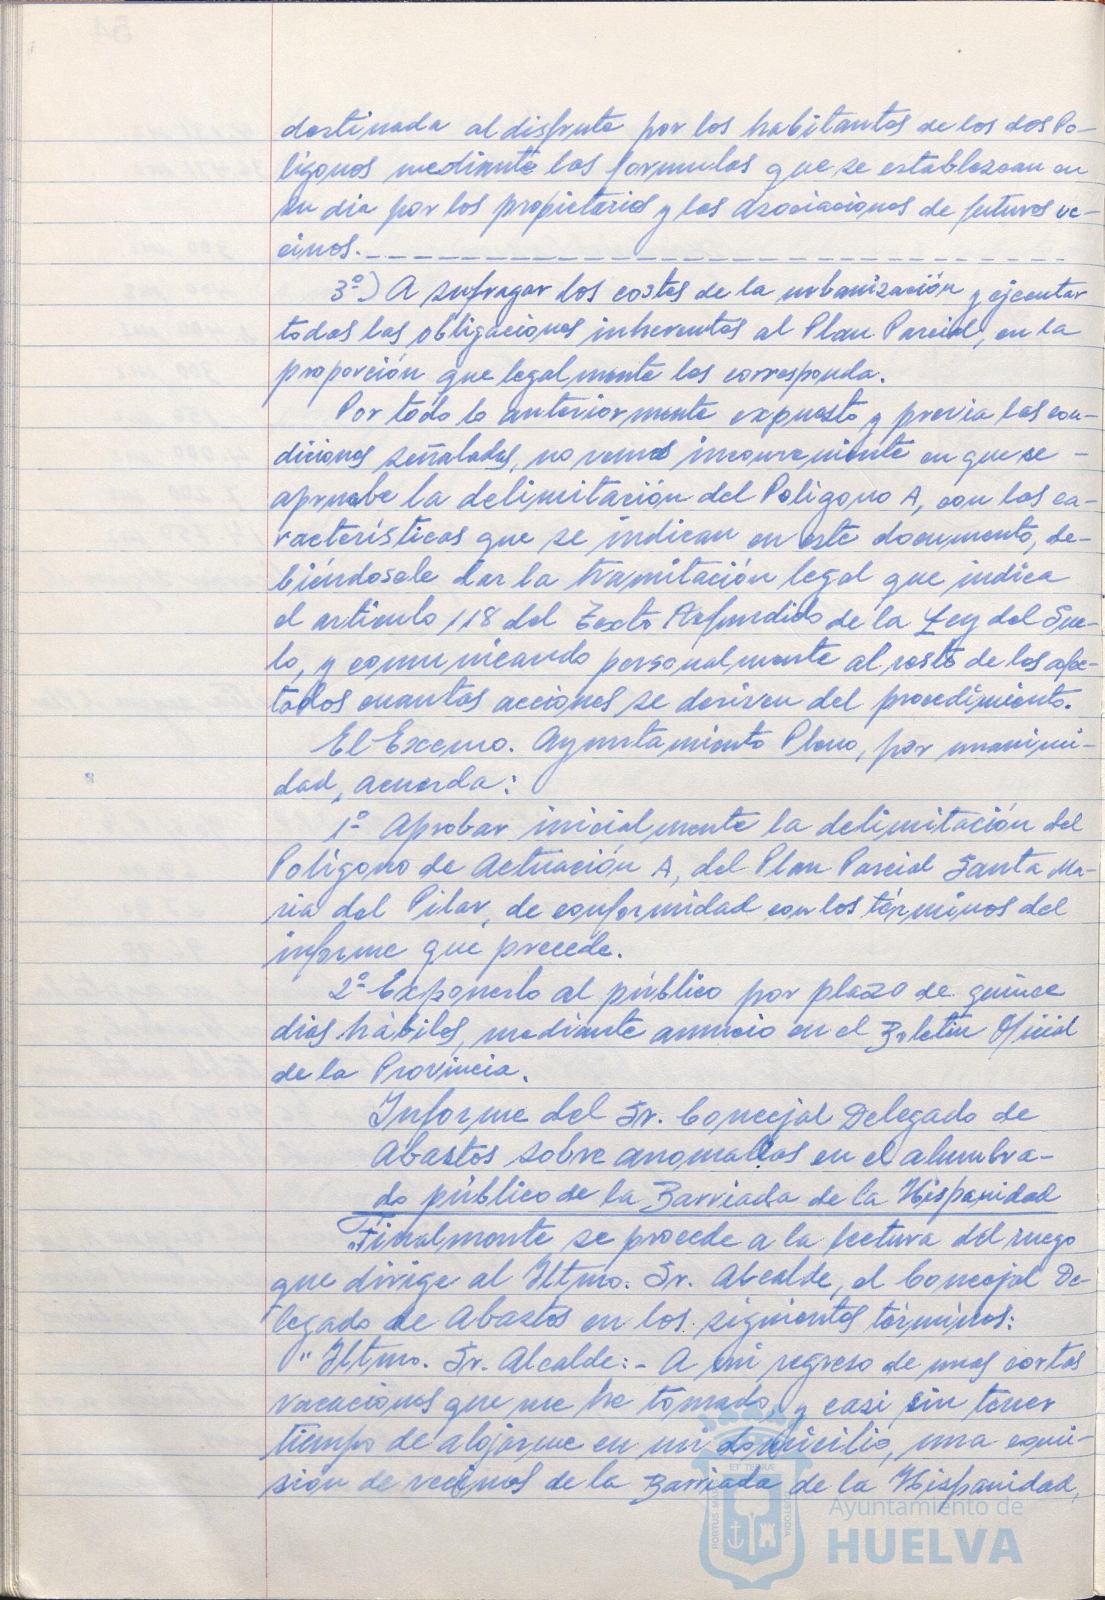 destinada al disfrute por los habitantes de los dos Po-
lígonos mediante las formulas que se establezcan en
su dia por los propietarios y las Asociaciones de futuros ve-
cinos.
3º) A sufragar los costes de la urbanización y ejecutar
todas las obligaciones inherentes al Plan Parcial, en la
proporción que legalmente les corresponda.
Por todo lo anteriormente expuesto y previa las con-
diciones señaladas, no vemos inconveniente en que se -
apruebe la delimitación del Polígono A, con las ca-
racterísticas que se indican en este documento, de-
biéndosele dar la tramitación legal que indica
el artículo 118 del Texto Refundido de la Ley del Sue-
lo, y comunicando personalmente al resto de los afec-
tados cuantas acciones se deriven del procedimiento.
El Excmo. Ayuntamiento Pleno, por unanimi-
dad, acuerda:
1º Aprobar inicialmente la delimitación del
Polígono de Actuación A, del Plan Parcial Santa Ma-
ria del Pilar, de conformidad con los términos del
informe que precede.
2º Exponerlo al público por plazo de quince
dias hábiles, mediante anuncio en el Boletín Oficial
de la Provincia.
Informe del Sr. Concejal Delegado de
Abastos sobre anomalías en el alumbra-
do público de la Barriada de la Hispanidad
Finalmente se procede a la lectura del ruego
que dirige al Iltmo. Sr. Alcalde, el Concejal De-
legado de Abastos en los siguientes términos:
"Iltmo. Sr. Alcalde: - A mi regreso de unas cortas
vacaciones que me he tomado, y casi sin tener
tiempo de alojarme en mi domicilio, una comi-
sión de vecinos de la Barriada de la Hispanidad,
Ayuntamiento de
HUELVA
PORTUS MARIS
ET TERRE
CUSTODIA